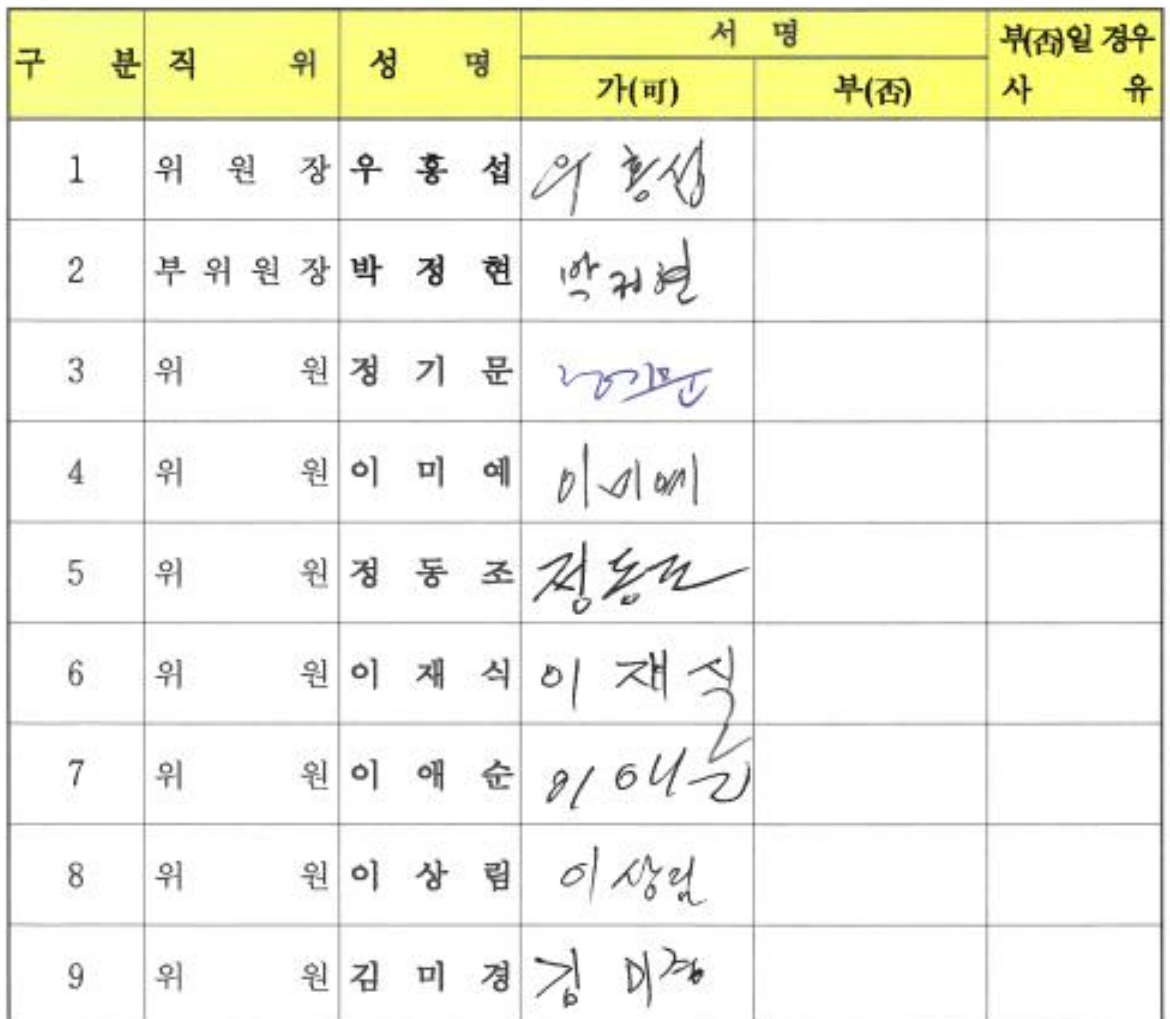 구 분 직 위 성 명 서 명 부(否)일 경우
가(可) 부(否) 사 유
1 위 원 장 우 홍 섭 우 홍 섭
2 부 위 원 장 박 정 현 박 정 현
3 위 원 정 기 문 정기문
4 위 원 이 미 예 이 미 예
5 위 원 정 동 조 정 동 조
6 위 원 이 재 식 이 재 식
7 위 원 이 애 순 이 애 순
8 위 원 이 상 림 이 상 림
9 위 원 김 미 경 김 미 경